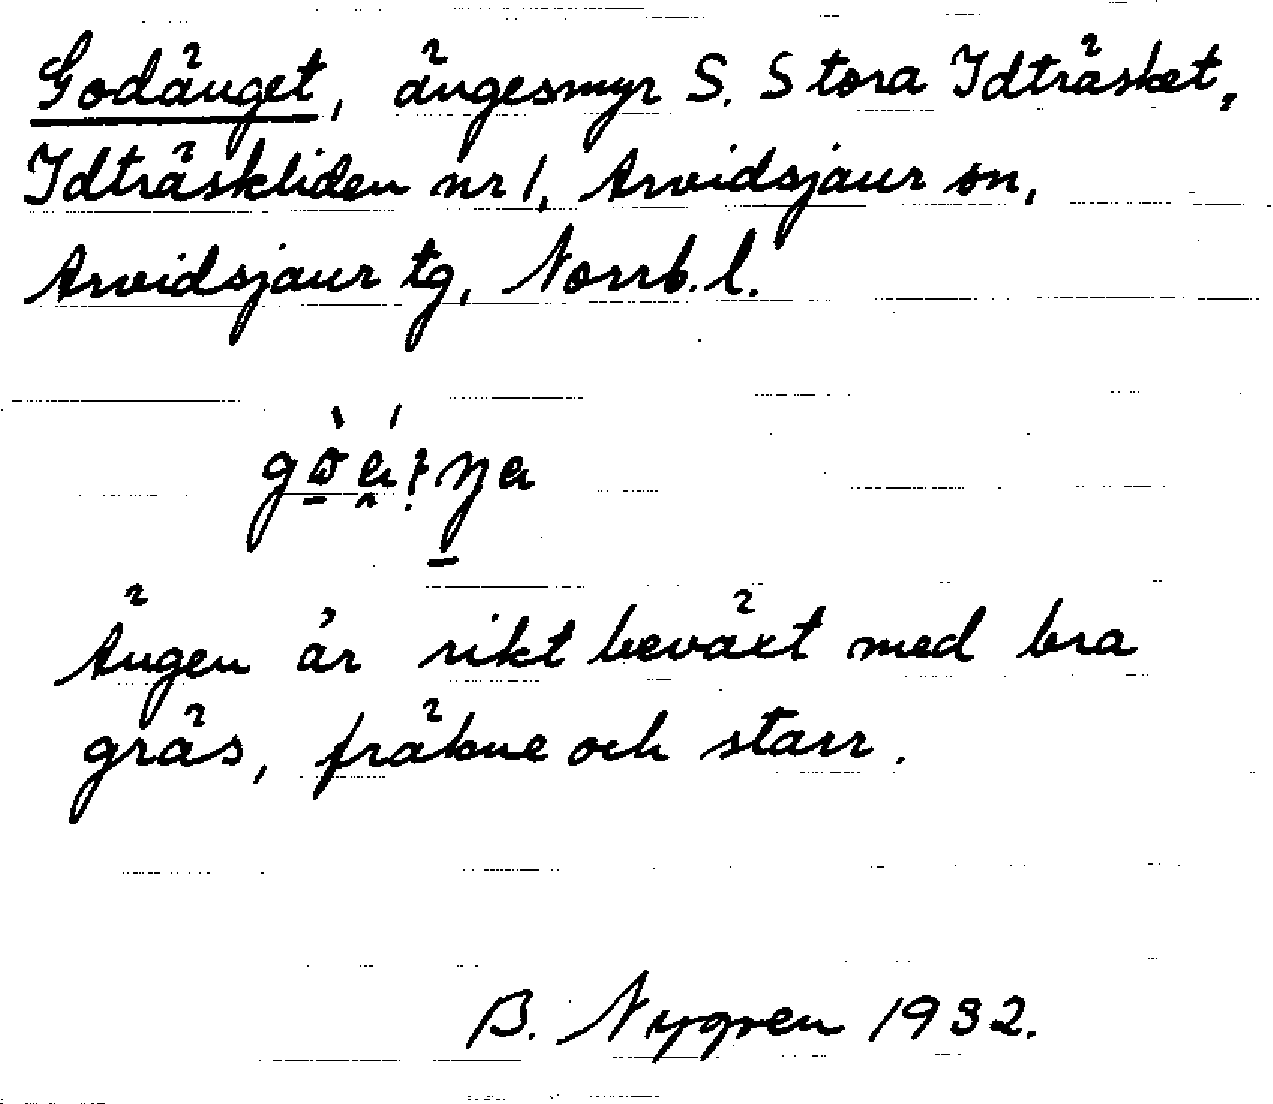 Godänget, ängesmyr S. Stora Idträsket,
Idträskliden nr 1, Arvidsjaur sn,
Arvidsjaur tg, Norrb. l.
Ängen är rikt beväxt med bra
gräs, fräkne och starr.
B. Nygren 1932.